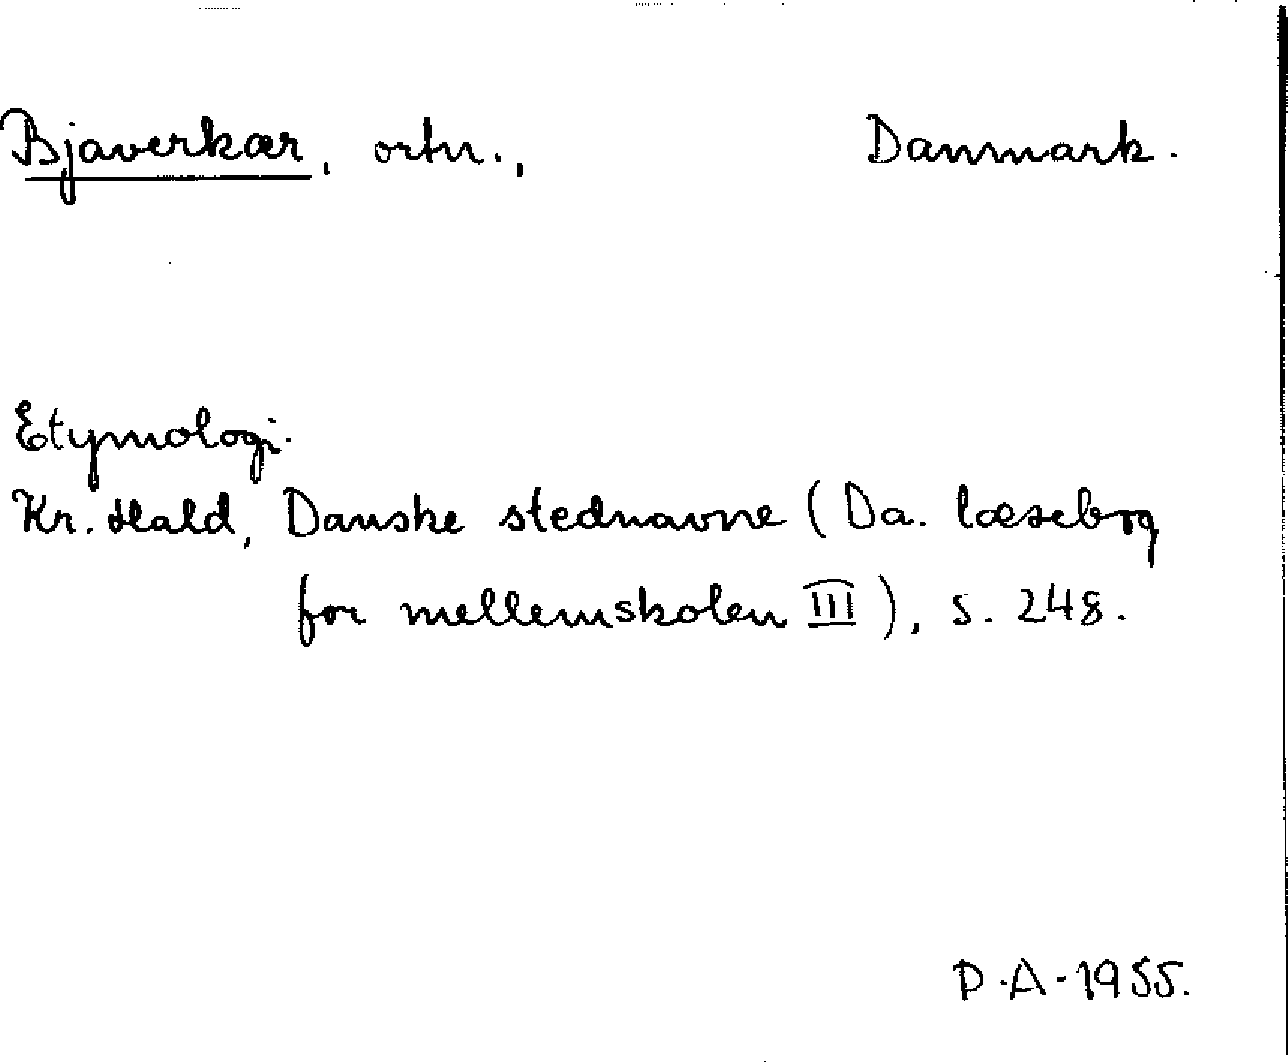 Bjaverkær, ortn., Danmark.
Etymologi.
Kr. Hald, Danske stednavne (Da. læsebog
for mellemskolen III), s. 248.
P.A-1955.